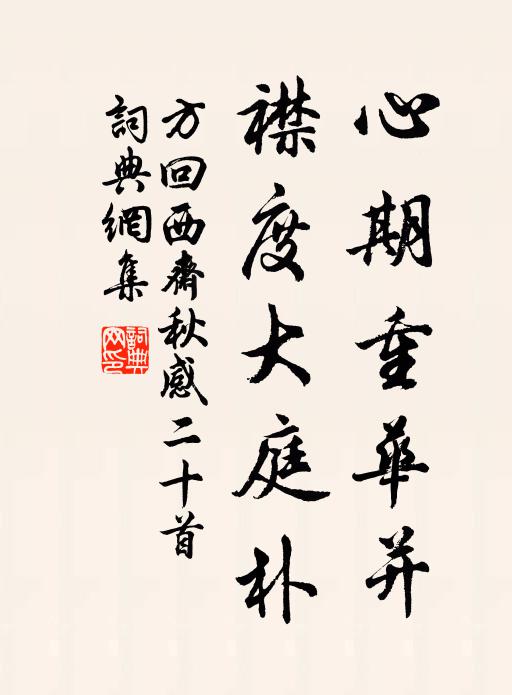 心期重華并
襟度大庭朴
方回西齋秋感二十首
詞典網集
詞典網印